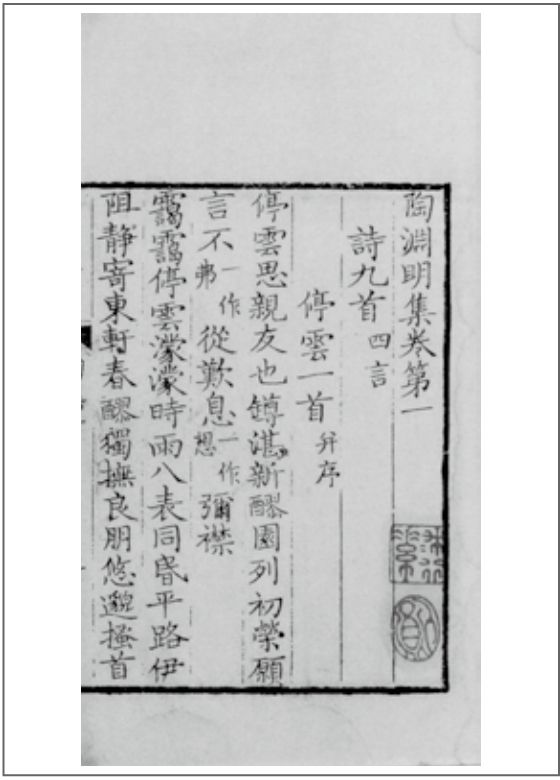 陶淵明集卷第一
詩九首 四言
停雲一首 并序
停雲思親友也罇湛新醪園列初榮願
言不一作弗從歎息一作想彌襟
靄靄停雲濛濛時雨八表同昬平路伊
阻靜寄東軒春醪獨撫良朋悠邈搔首